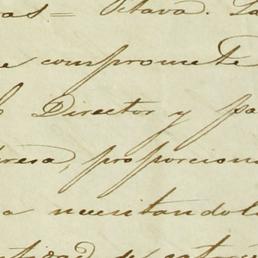 as = Octava. La
e compromete
Director y pa
resa, proporcion
a necesitandolo